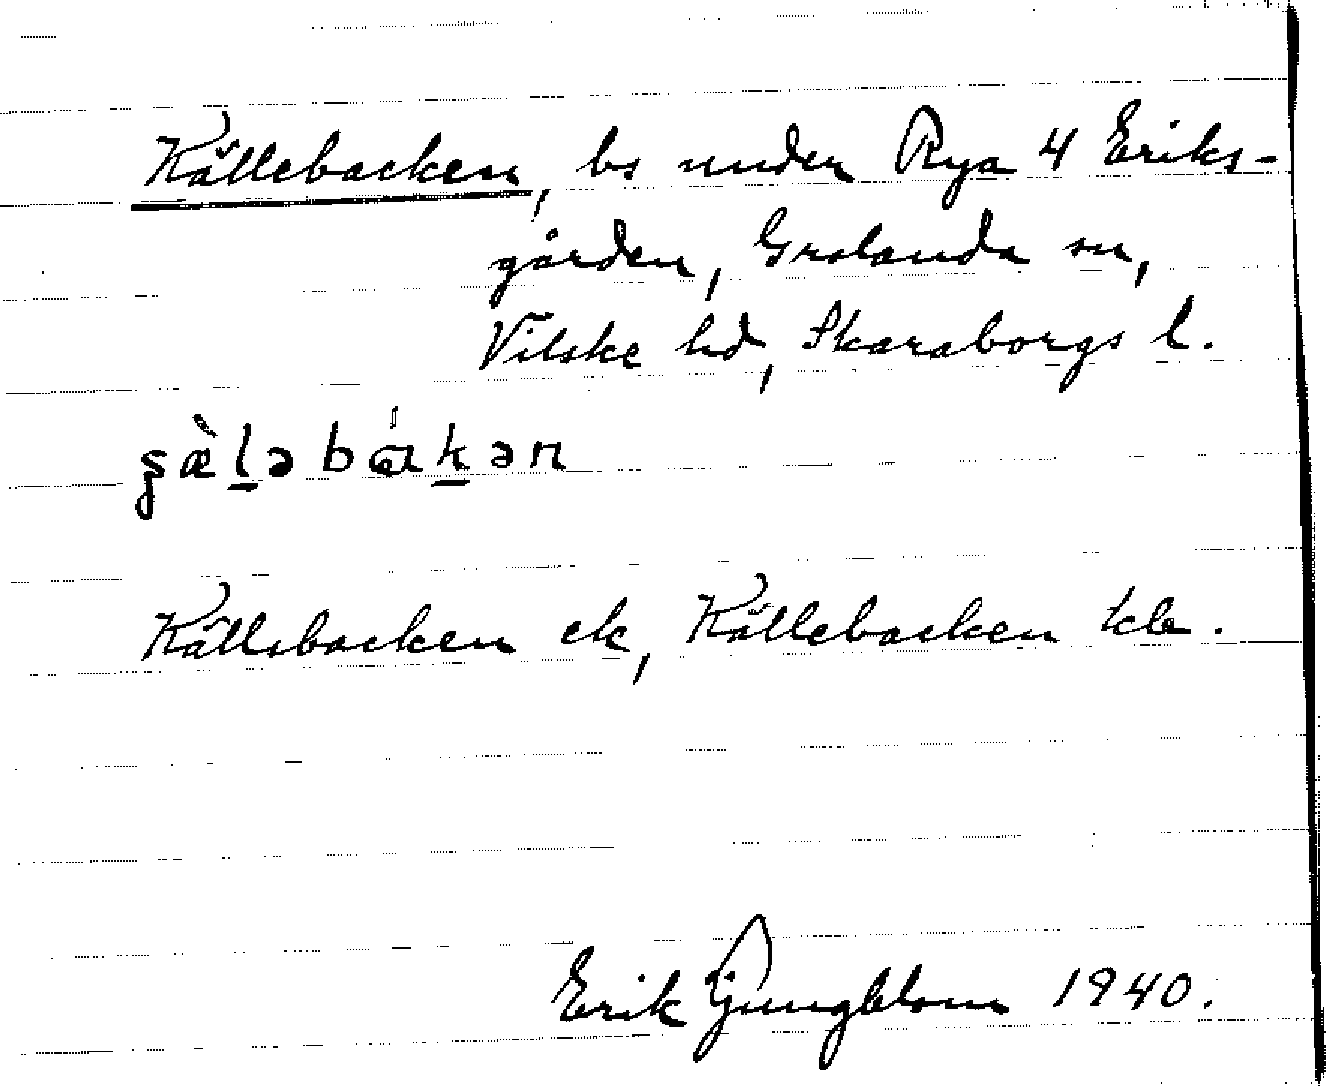 Källebacken, bs under Rya 4 Eriks-
gården, Grolanda sn,
Vilske hd, Skaraborgs l.
Källebacken ek, Källebacken kb.
Erik Ljungblom 1940.